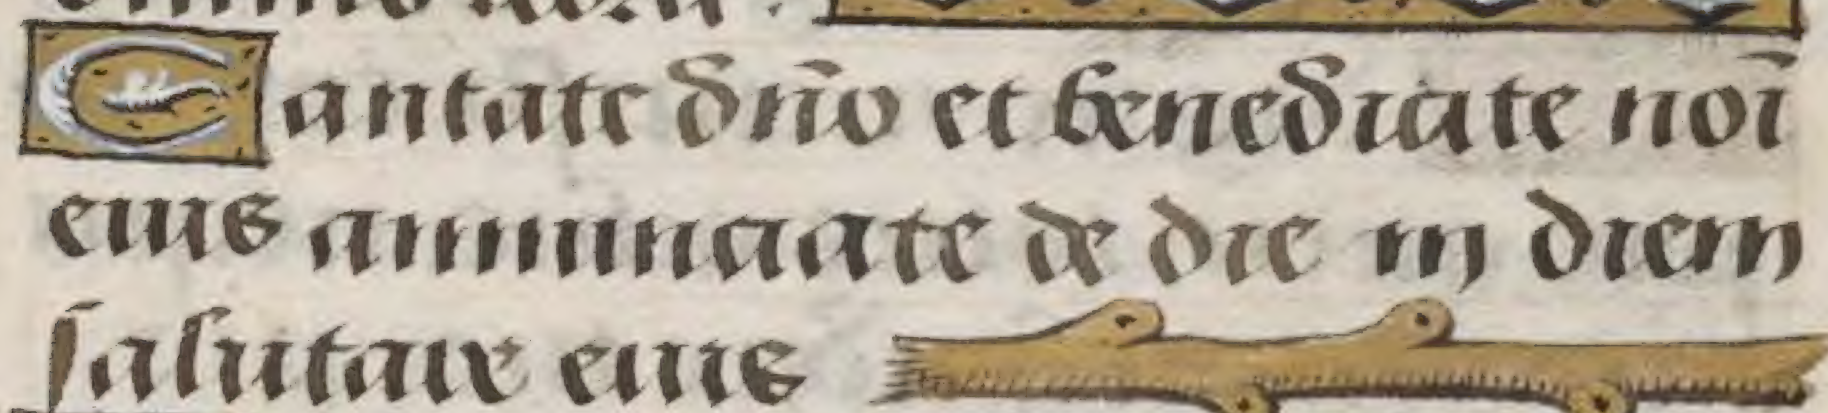 Cantate dño et benedicite noĩ
eius annunciate de die in diem
salutare eius